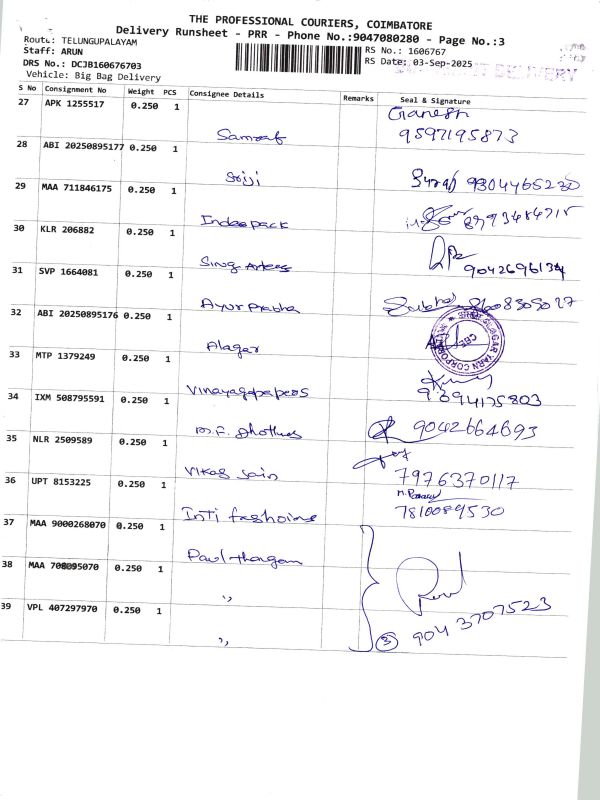 THE PROFESSIONAL COURIERS, COIMBATORE
Delivery Runsheet - PRR - Phone No.:9047080280 - Page No.:3
Route: TELUNGUPALAYAM
Staff: ARUN
RS No.: 1606767
DRS No.: DCJB160676703
RS Date: 03-Sep-2025
DELIVERY
Vehicle: Big Bag Delivery
S No Consignment No Weight PCS Consignee Details Remarks Seal & Signature
27 APK 1255517 0.250 1 Ganesh
9597195873
28 ABI 20250895177 0.250 1
Sriji 9304465230
29 MAA 711846175 0.250 1
Indeepack
30 KLR 206882 0.250 1
9042696134
31 SVP 1664081 0.250 1
Ayur prabha
32 ABI 20250895176 0.250 1
Alagar
33 MTP 1379249 0.250 1
Vinayagapapers
34 IXM 508795591 0.250 1
9042664693
35 NLR 2509589 0.250 1
Vikas Jain 7976370117
36 UPT 8153225 0.250 1
Inti fashions 7810089530
37 MAA 9000268070 0.250 1
Paul thangam
38 MAA 0.250 1
"
39 VPL 407297970 0.250 1
" 3 9043707523